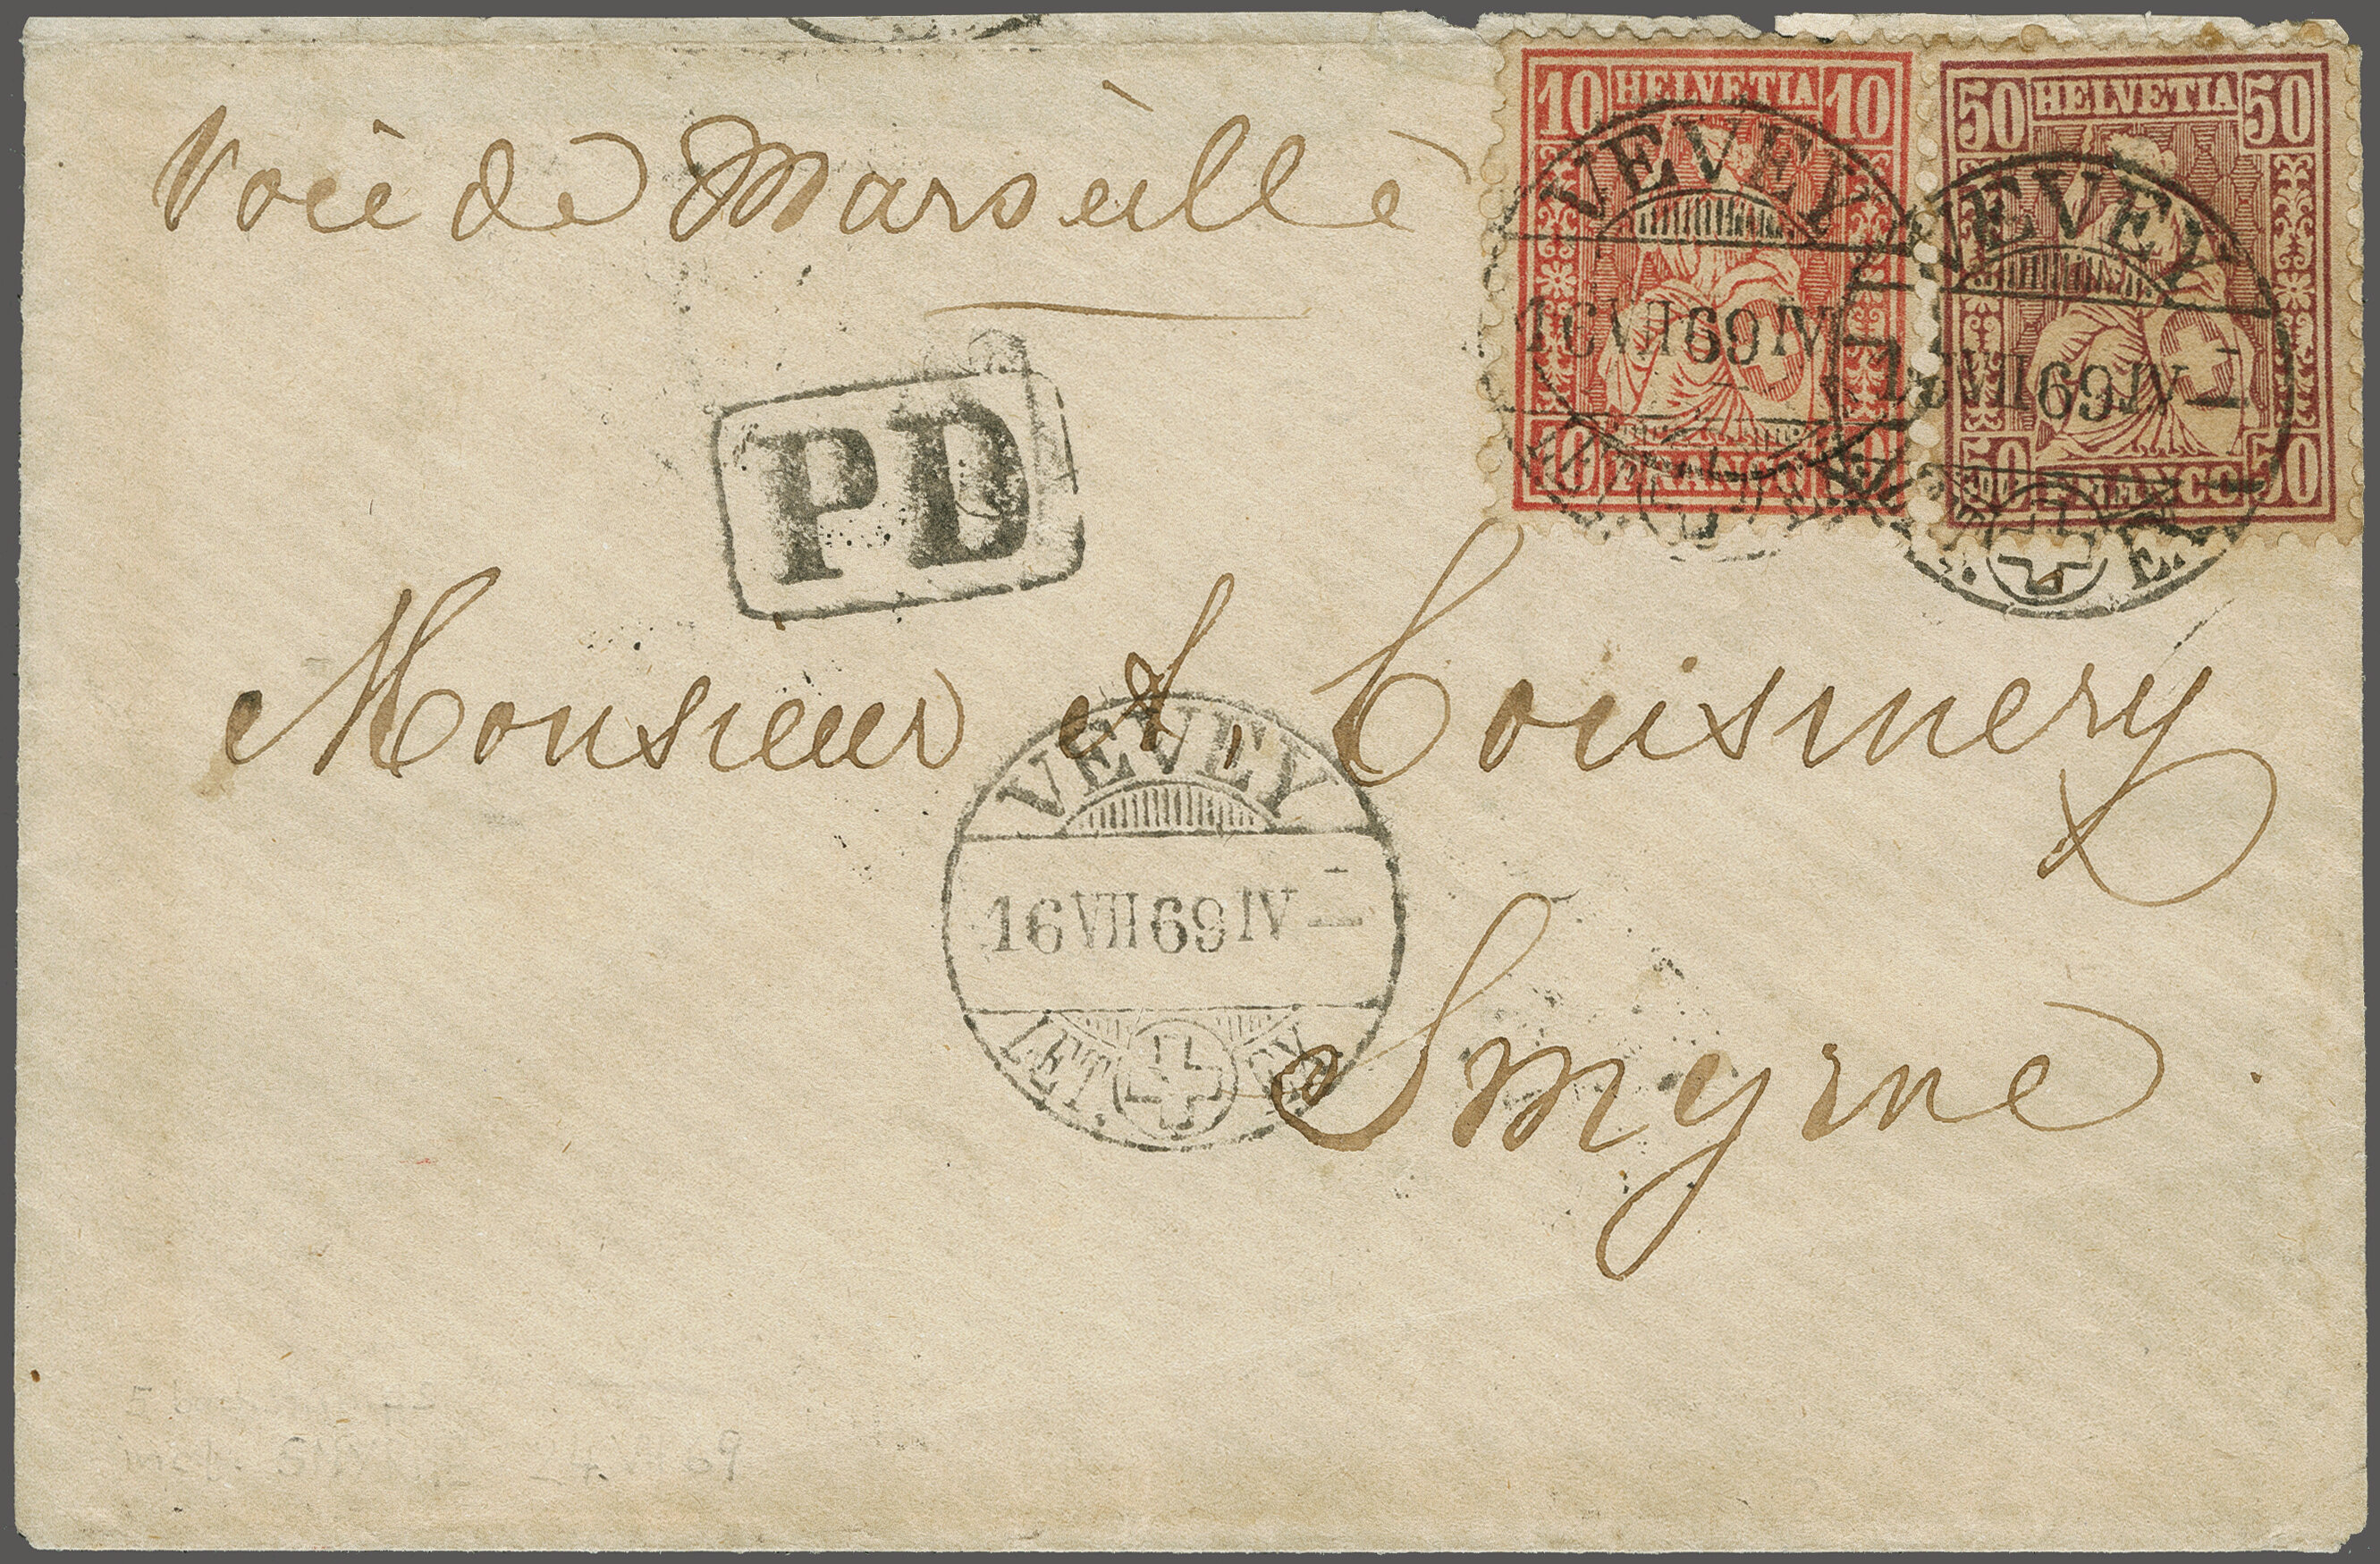 Voie de Marseille
10 HELVETIA 10
50 HELVETIA 50
VEVEY
VEVEY
16 VII 69 IV
16 VII 69 IV
10 FRANCO 10
50 FRANCO 50
PD
Monsieur A. Cousinery
VEVEY
16 VII 69 IV
LET. EX
Smyrne
24.VII 69